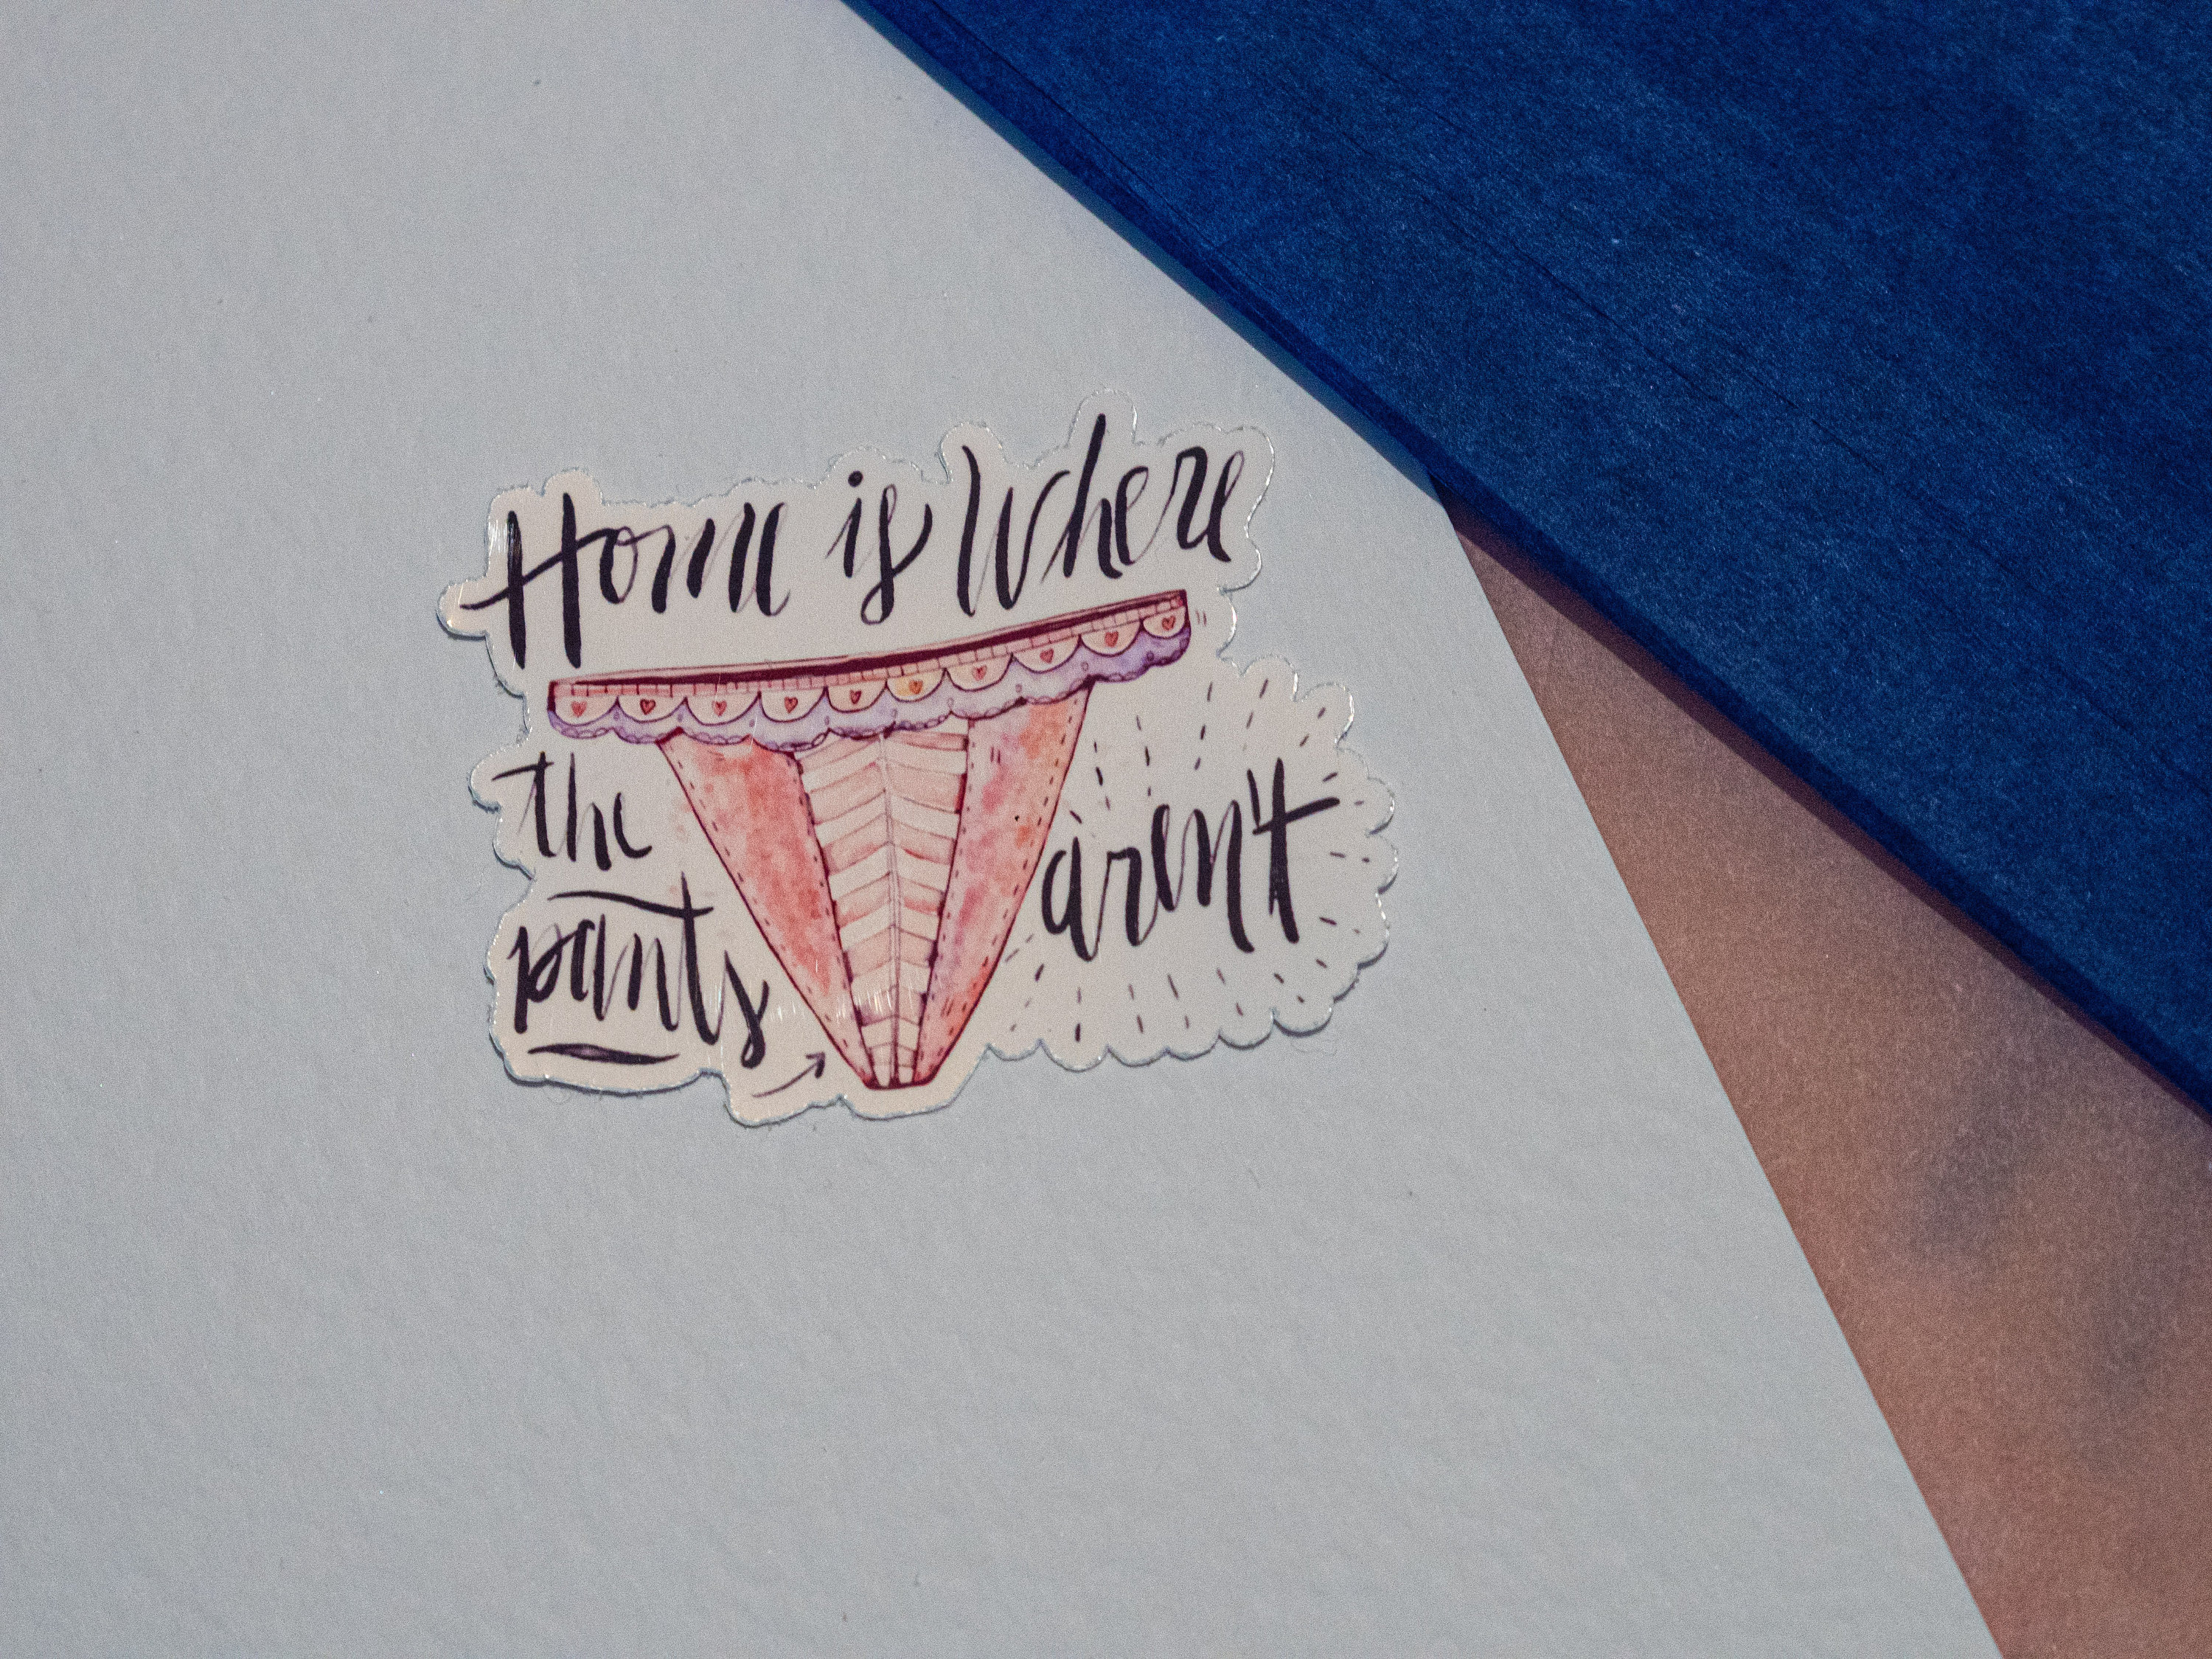 Home is Where
the
pants
aren't